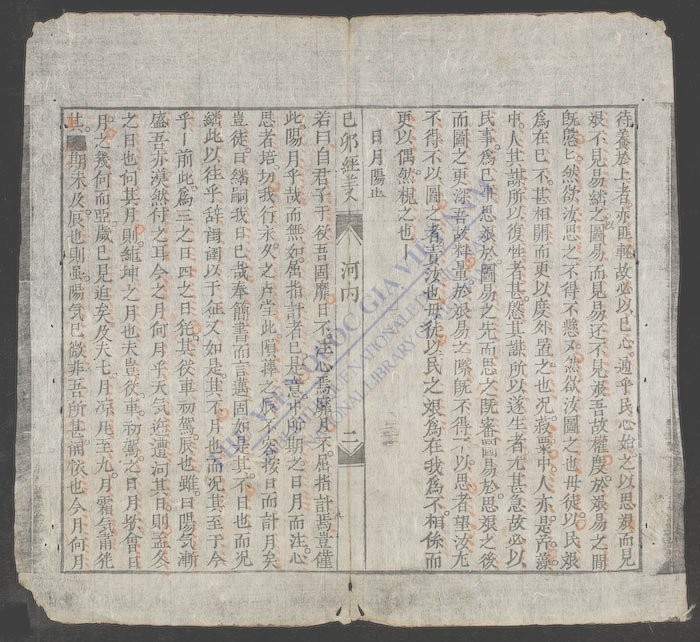 待養於上者亦匪輕故必以已心適乎民心始之以思艱而見
艱不見易繼之圖易而見易还不見艱吾故權度於艱易之間
既 然欲汝思之不得不懸又然欲汝圖之也毋徒以民艱
為在巳不甚相関而更以度外置之也况 粟中人亦是芹藻
中人其謀所以復性者甚慇其謀所以遂生者尤甚急故必以
民事為巳事思艱於圖易之先而思之既審圖易於思艱之後
而圖之更深吾故稱量於艱易之際既不得不以思者望汝尤
不得不以圖之者責汝也毋徒以民之艱為在我為不相係而
更以偶然視之也
日月陽止
己卯經義 河内 二
若曰自君子于役吾固靡日不 心焉靡月不屈指計焉豈僅
此陽月乎哉而無如屈指計者已是當年所期之日月而注心
思者 切我行永久之 此願 之 不 按日而計月矣
豈徒日繼嗣我日已哉奉簡書而言邁固如是其不日也而况
繼此以往乎辞閨閫以于征又如是其不月也而况其至于今
乎前此為三之日四之日犹其役車初駕辰也雖日陽気漸
盛吾亦漠然付之耳今之月何月乎天気 何其日則孟冬
之日也何其月則純坤之月也夫豈役車初駕之日月欤曾日
月之幾何而亞歲已見 矣及夫七月凉月至九月霜気肅
其 期未及辰也則虽陽気已微非吾所甚 懐也今月何月
THƯ VIỆN QUỐC GIA VIỆT NAM
NATIONAL LIBRARY